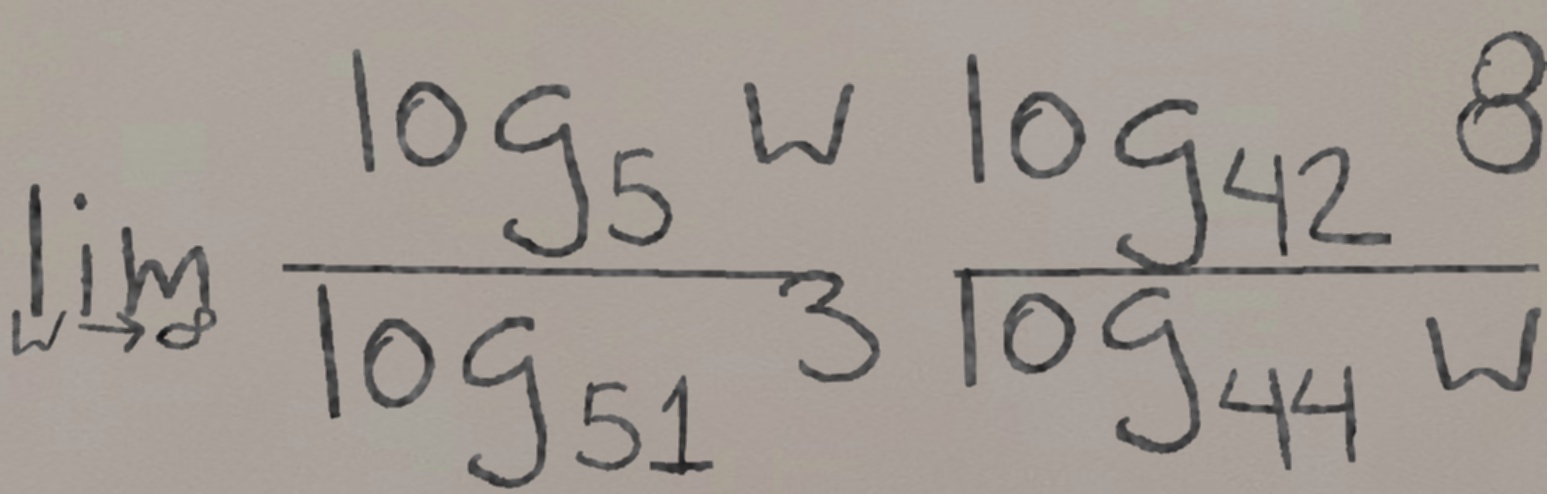 \lim_{w \to \infty} \frac{\log_{5} w}{\log_{51} 3} \frac{\log_{42} 8}{\log_{44} w}